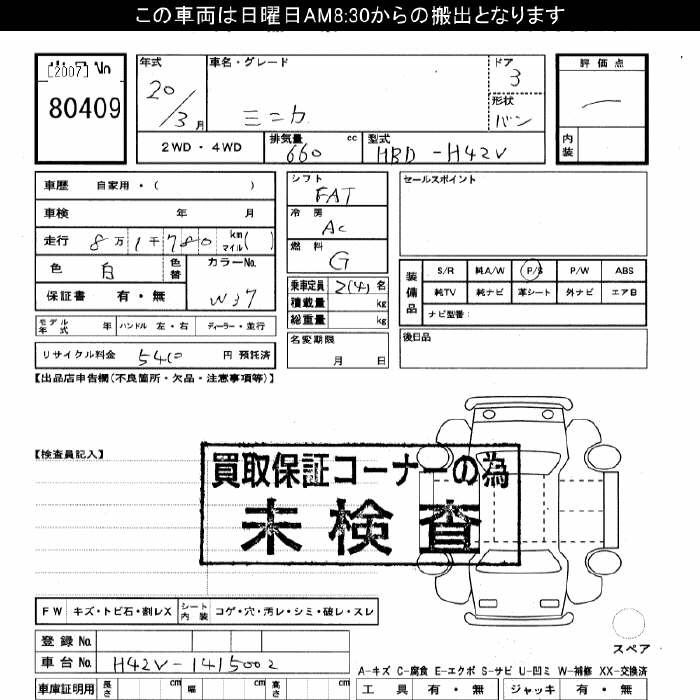 この車両は日曜日AM8:30からの搬出となります
[2007]
80409
年式
20/3月
車名・グレード
ミニカ
ドア
3
形状
バン
評価点
内装
2WD・4WD
排気量 660 cc
型式 HBD-H42V
車歴 自家用・( )
車検 年 月
走行 8万1千780 km マイル( )
色 白 色替
カラーNo.
W37
保証書 有・無
モデル年式 年 ハンドル 左・右 ディーラー・並行
リサイクル料金 5410 円 預託済
シフト
FAT
冷房
AC
燃料
G
乗車定員 2(4)名
積載量 kg
総重量 kg
名変期限
月 日
セールスポイント
装備品
S/R 純A/W P/S P/W ABS
純TV 純ナビ 革シート 外ナビ エアB
ナビ型番:
後日品
【出品店申告欄(不良箇所・欠品・注意事項等)】
【検査員記入】
買取保証コーナーの為
未検査
FW キズ・トビ石・割レX シート内装 コゲ・穴・汚レ・シミ・破レ・スレ
登録No.
車台No. H42V-1415002
スペア
A-キズ C-腐食 E-エクボ S-サビ U-凹ミ W-補修 XX-交換済
車庫証明用 長さ cm 幅 cm 高さ cm
工具 有・無 ジャッキ 有・無